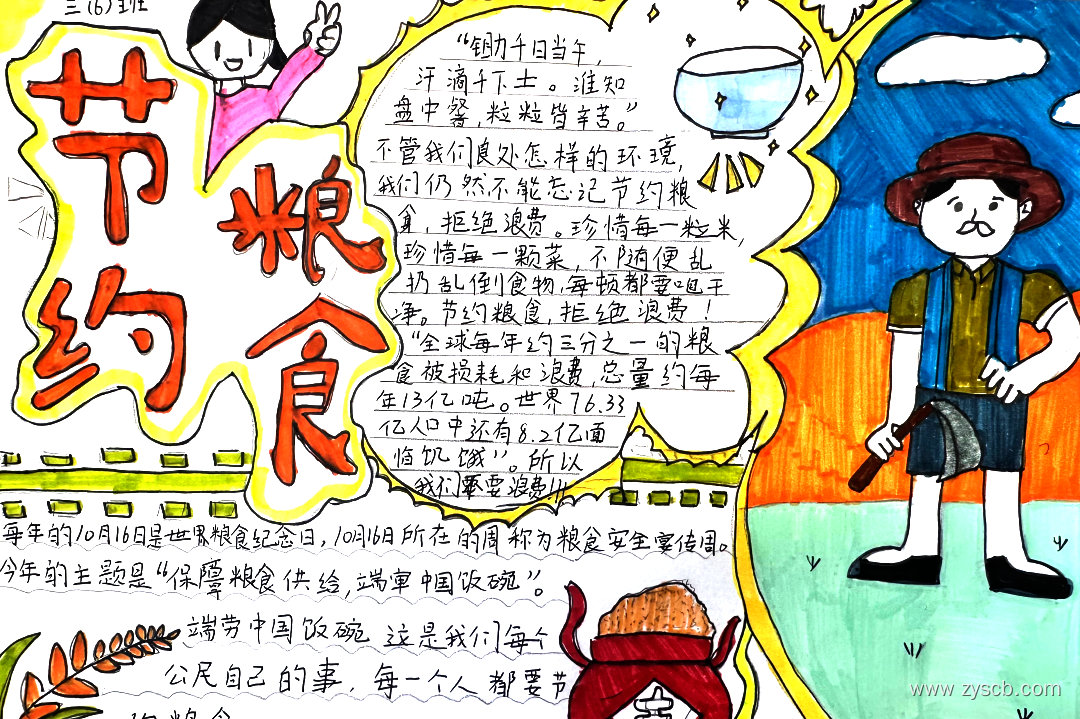 三(6)班
节约
粮食
“锄千日当午,
汗滴千下土。准知
盘中餐,粒粒皆辛苦。”
不管我们良处怎样的环境,
我们仍然不能忘记节约粮
食,拒绝浪费。珍惜每一粒米,
珍惜每一颗菜,不随便乱
扔乱倒食物,每顿都要吃干
净。节约粮食,拒绝浪费!
“全球每年约三分之一的粮
食被损耗和浪费,总量约每
年13亿吨。世界76.33
亿人口中还有8.2亿面
临饥饿”。所以
我们要浪费!!!
每年的10月16日是世界粮食纪念日,10月16日所在的周称为粮食安全宣传周。
今年的主题是“保障粮食供给,端牢中国饭碗”。
端劳中国饭碗 这是我们每个
公民自己的事,每一个人都要节
约粮食
www.zyscb.com